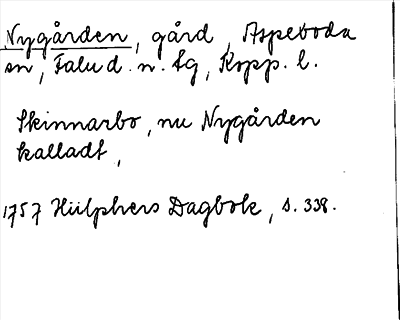 Nygården, gård, Aspeboda
sn, Falu d. n. tg, Kopp. l.
Skinnarbo, nu Nygården
kalladt,
1757 Hülphers Dagbok, s. 338.